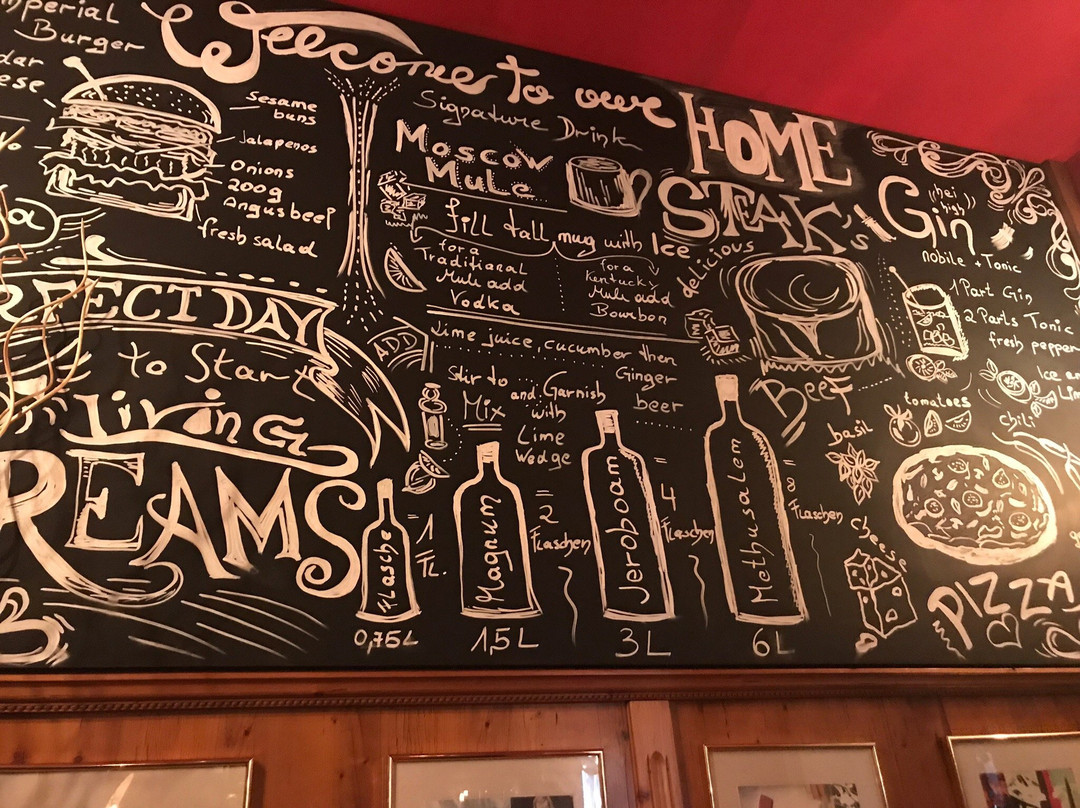 Imperial
Burger
Sesame
buns
Jalapenos
Onions
200g
Angusbeef
fresh salad
Welcome to our
HOME
Signature Drink
Moscow
Mule
fill tall mug with Ice
for a
Traditional
Mule add
Vodka
for a
Kentucky
Mule add
Bourbon
ADD
Lime juice, cucumber then
Ginger
beer
Stir to
Mix
and Garnish
with
Lime
Wedge
STEAK's
delicious
BEEF
Gin
hei
high
nobile + Tonic
1 Part Gin
2 Parts Tonic
fresh pepper
Ice
tomatoes
chili
basil
cheese
PIZZA
RFECT DAY
to Start
Living
REAMS
Flasche
= 1
FL.
0,75L
Magnum
= 2
Flaschen
1,5L
Jeroboam
= 4
Flaschen
3L
Methusalem
= 8
Flaschen
6L